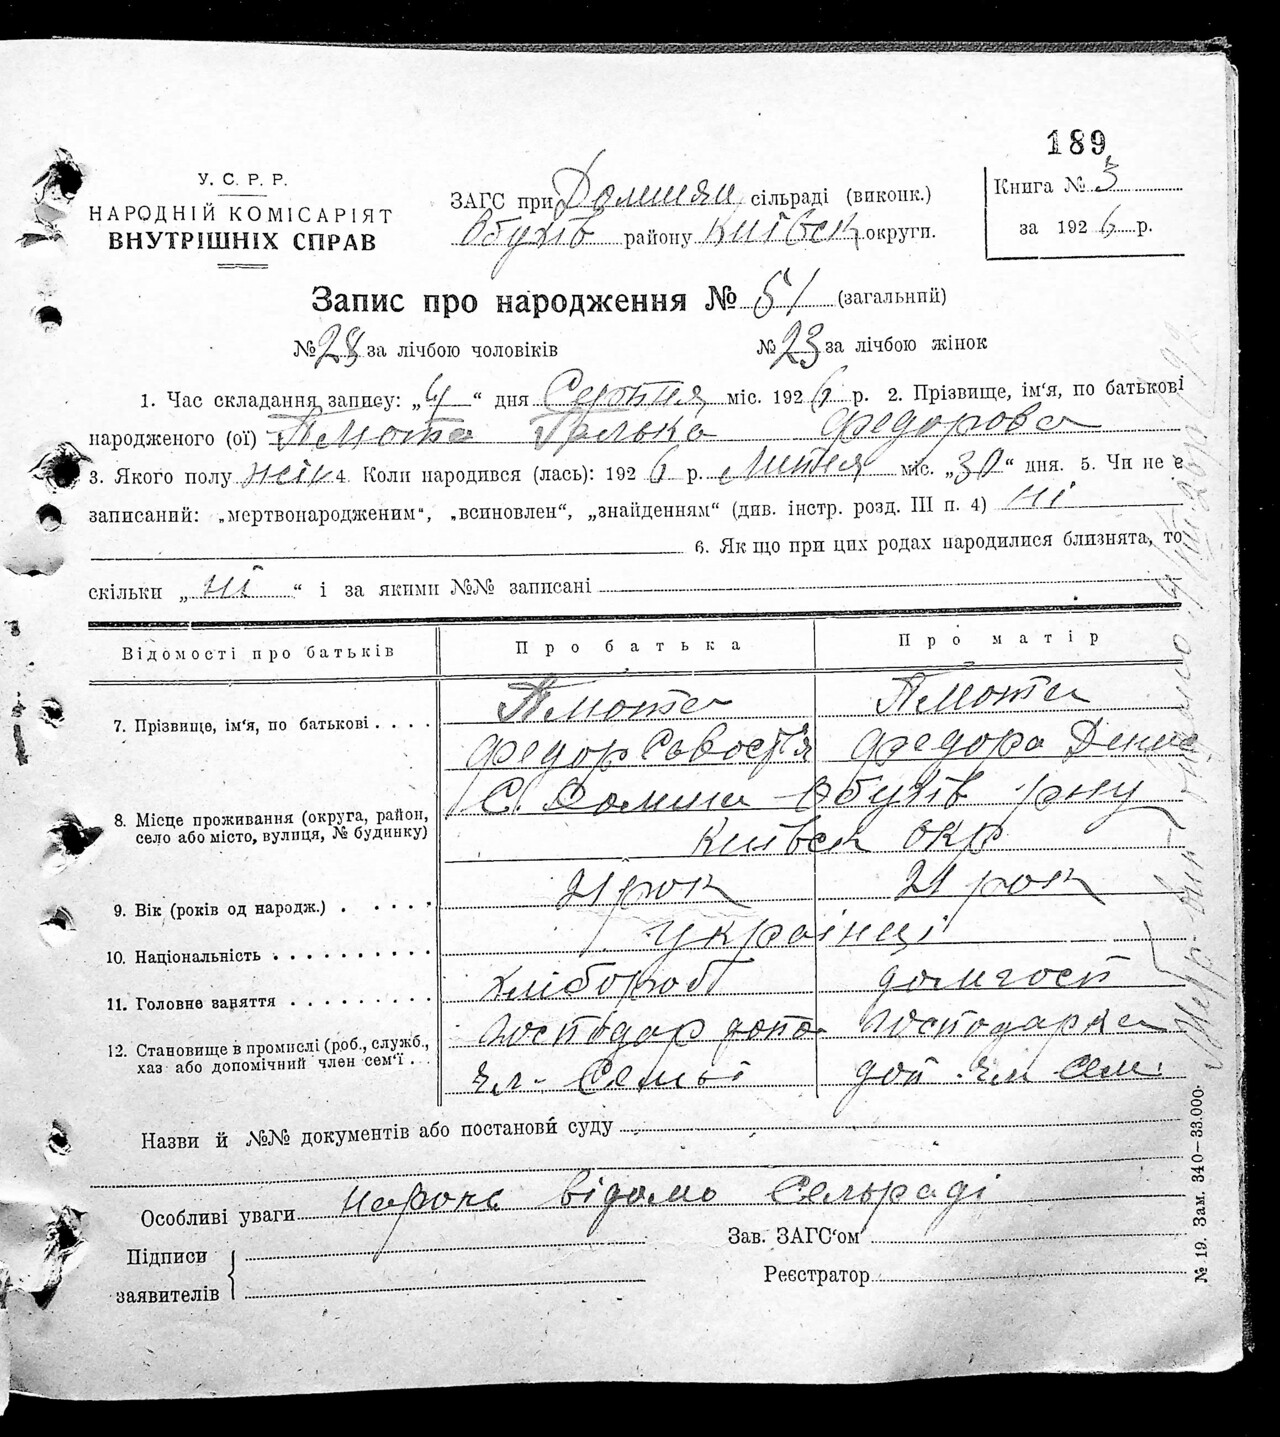 189
У. С. Р. Р.
НАРОДНІЙ КОМІСАРІЯТ
ВНУТРІШНІХ СПРАВ
ЗАГС при сільраді (виконк.)
Обухів району Київськ округи.
Книга № 3
за 1926 р.
Запис про народження № 51 (загальний)
№ 28 за лічбою чоловіків
№ 23 за лічбою жінок
1. Час складання запису: „4“ дня Серпня міс. 1926 р. 2. Прізвище, ім‘я, по батькові
народженого (ої) Галька Федорова
3. Якого полу жін 4. Коли народився (лась): 1926 р. Липня міс. „30“ дня. 5. Чи не є
записаний: „мертвонародженим“, „всиновлен“, „знайденням“ (див. інстр. розд. III п. 4) ні
6. Як що при цих родах народилися близнята, то
скільки „ні“ і за якими №№ записані
Відомості про батьків
Про батька
Про матір
7. Прізвище, ім‘я, по батькові . . . .
Федор
8. Місце проживання (округа, район,
село або місто, вулиця, № будинку)
С. Обухів рну
Київськ окр
9. Вік (років од народж.) . . . . .
21 рок
21 рок
10. Національність . . . . . . . . . .
українці
11. Головне заняття . . . . . . . . .
хлібороб
домгосп
12. Становище в промислі (роб., служб.,
хаз або допомічний член сем‘ї . . .
господар допо
чл. семьї
господарка
доп. чл сем.
Назви й №№ документів або постанови суду
Особливі уваги відомо Сельраді
Підписи
заявителів
Зав. ЗАГС‘ом
Реєстратор
№ 19. Зам. 340—33.000.